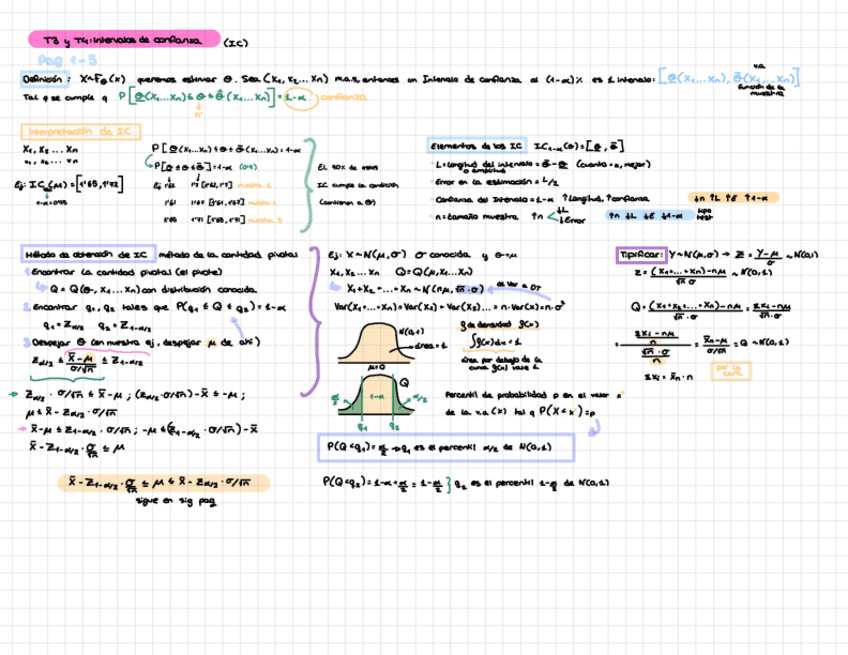 T3 y T4: Intervalos de confianza (IC)
Pag 1-5
Definición: X~Fθ(x) queremos estimar θ. Sea (X1, X2... Xn) m.a.s, entonces un Intervalo de Confianza al (1-α)% es 1 intervalo: [θ(X1...Xn), θ̄(X1...Xn)]
v.a
función de la muestra
Tal q se cumple q P[θ(X1...Xn) ≤ θ ≤ θ̄(X1...Xn)] = 1-α confianza
nº
Interpretación de IC
X1, X2 ... Xn
x1, x2, ... xn
Ej: IC (μ) = [1'65, 1'72]
1-α=0'95
P[θ(X1...Xn) ≤ θ ≤ θ̄(X1...Xn)] = 1-α
P[θ ≤ θ ≤ θ̄] = 1-α
muestra 1
1'61 muestra 2
muestra 3
IC cumple la condición
(contienen a θ)
Elementos de los IC IC1-α(θ) = [θ, θ̄]
L = longitud del intervalo = θ̄ - θ (cuanto -, mejor)
o amplitud
Error en la estimación = L/2
Confianza del Intervalo = 1-α ↑Longitud, ↑confianza
↓n ↑L ↑E ↑1-α
n = tamaño muestra ↑n ↓L ↓Error
↑n ↓L ↓E ↓1-α
Método de obtención de IC método de la cantidad pivotal
1 Encontrar la cantidad pivotal (el pivote)
Q = Q(θ, X1...Xn) con distribución conocida
2 Encontrar q1, q2 tales que P(q1 ≤ Q ≤ q2) = 1-α
q1 = Zα/2 q2 = Z1-α/2
3 Despejar θ (en nuestro ej, despejar μ de ahí)
Zα/2 ≤ (X̄-μ)/(σ/√n) ≤ Z1-α/2
→ Zα/2 · σ/√n ≤ X̄-μ ; (Zα/2·σ/√n) - X̄ ≤ -μ ;
μ ≤ X̄ - Zα/2 · σ/√n
→ X̄-μ ≤ Z1-α/2 · σ/√n ; -μ ≤ (Z1-α/2 · σ/√n) - X̄
X̄ - Z1-α/2 · σ/√n ≤ μ
X̄ - Z1-α/2 · σ/√n ≤ μ ≤ X̄ - Zα/2 · σ/√n
sigue en sig pag
Ej: X~N(μ,σ) σ conocida y θ=μ
X1, X2 ... Xn Q = Q(μ, X1...Xn)
X1 + X2 + ... + Xn ~ N(nμ, √n·σ) de Var a DT
Var(X1+...+Xn) = Var(X1) + Var(X2)... = n·Var(X) = n·σ²
N(0,1)
área = 1
μ=0
g de densidad g(x)
∫g(x)dx = 1
área por debajo de la curva g(x) vale 1
Q
α/2 1-α α/2
q1 q2
Percentil de probabilidad p en el valor x
de la v.a (X) tal q P(X<x) = p
P(Q<q1) = α/2 → q1 es el percentil α/2 de N(0,1)
P(Q<q2) = 1-α+α/2 = 1-α/2 } q2 es el percentil 1-α/2 de N(0,1)
Tipificar: Y~N(μ,σ) → Z = (Y-μ)/σ ~ N(0,1)
Z = ((X1+...+Xn)-nμ)/(√n·σ) ~ N(0,1)
Q = ((X1+X2+...+Xn)-nμ)/(√n·σ) = (ΣXi-nμ)/(√n·σ)
= ((ΣXi-nμ)/n)/((√n·σ)/n) = (X̄n-μ)/(σ/√n) = Q ~ N(0,1)
ΣXi = X̄n · n
por la cara